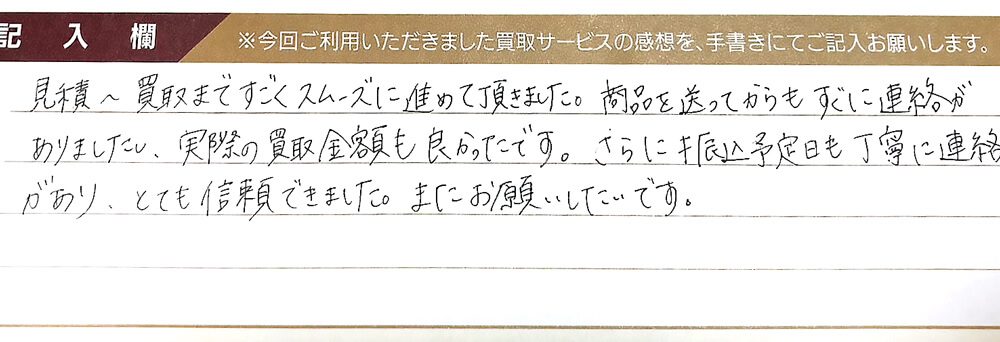 記入欄 ※今回ご利用いただきました買取サービスの感想を、手書きにてご記入お願いします。
見積～買取まですごくスムーズに進めて頂きました。商品を送ってからもすぐに連絡が
ありましたし、実際の買取金額も良かったです。さらに振込予定日も丁寧に連絡
があり、とても信頼できました。またお願いしたいです。